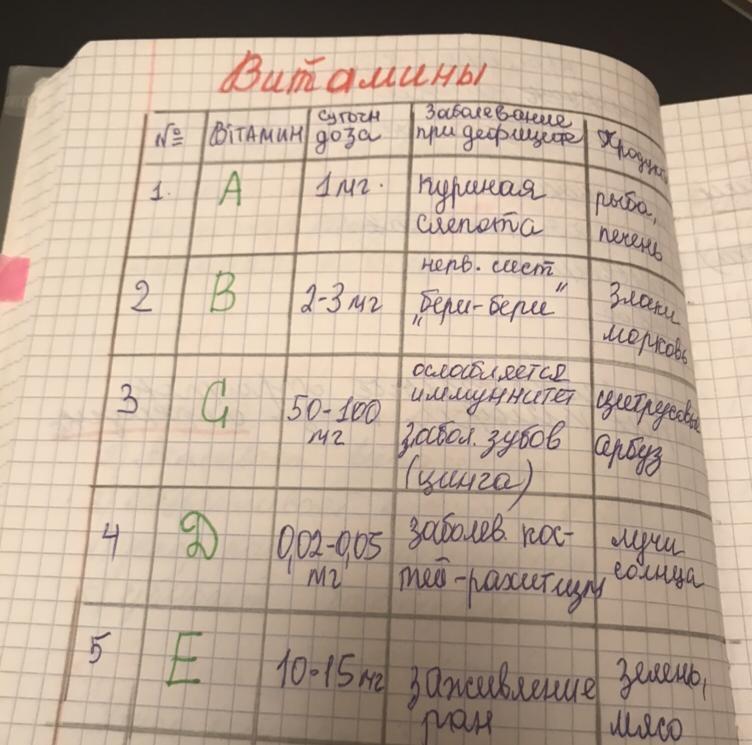 Витамины
№ Вітамин Суточн доза Заболевание при дефиците Продукт
1. А 1 мг. куриная слепота рыба, печень
2 В 2-3 мг нерв. сист "бери-бери" злаки морковь
3 С 50-100 мг ослабляется иммуннитет забол. зубов (цинга) цитрусовые арбуз
4 Д 0,02-0,05 мг заболев. костей-рахитизм лучи солнца
5 Е 10-15 мг заживление ран зелень, мясо